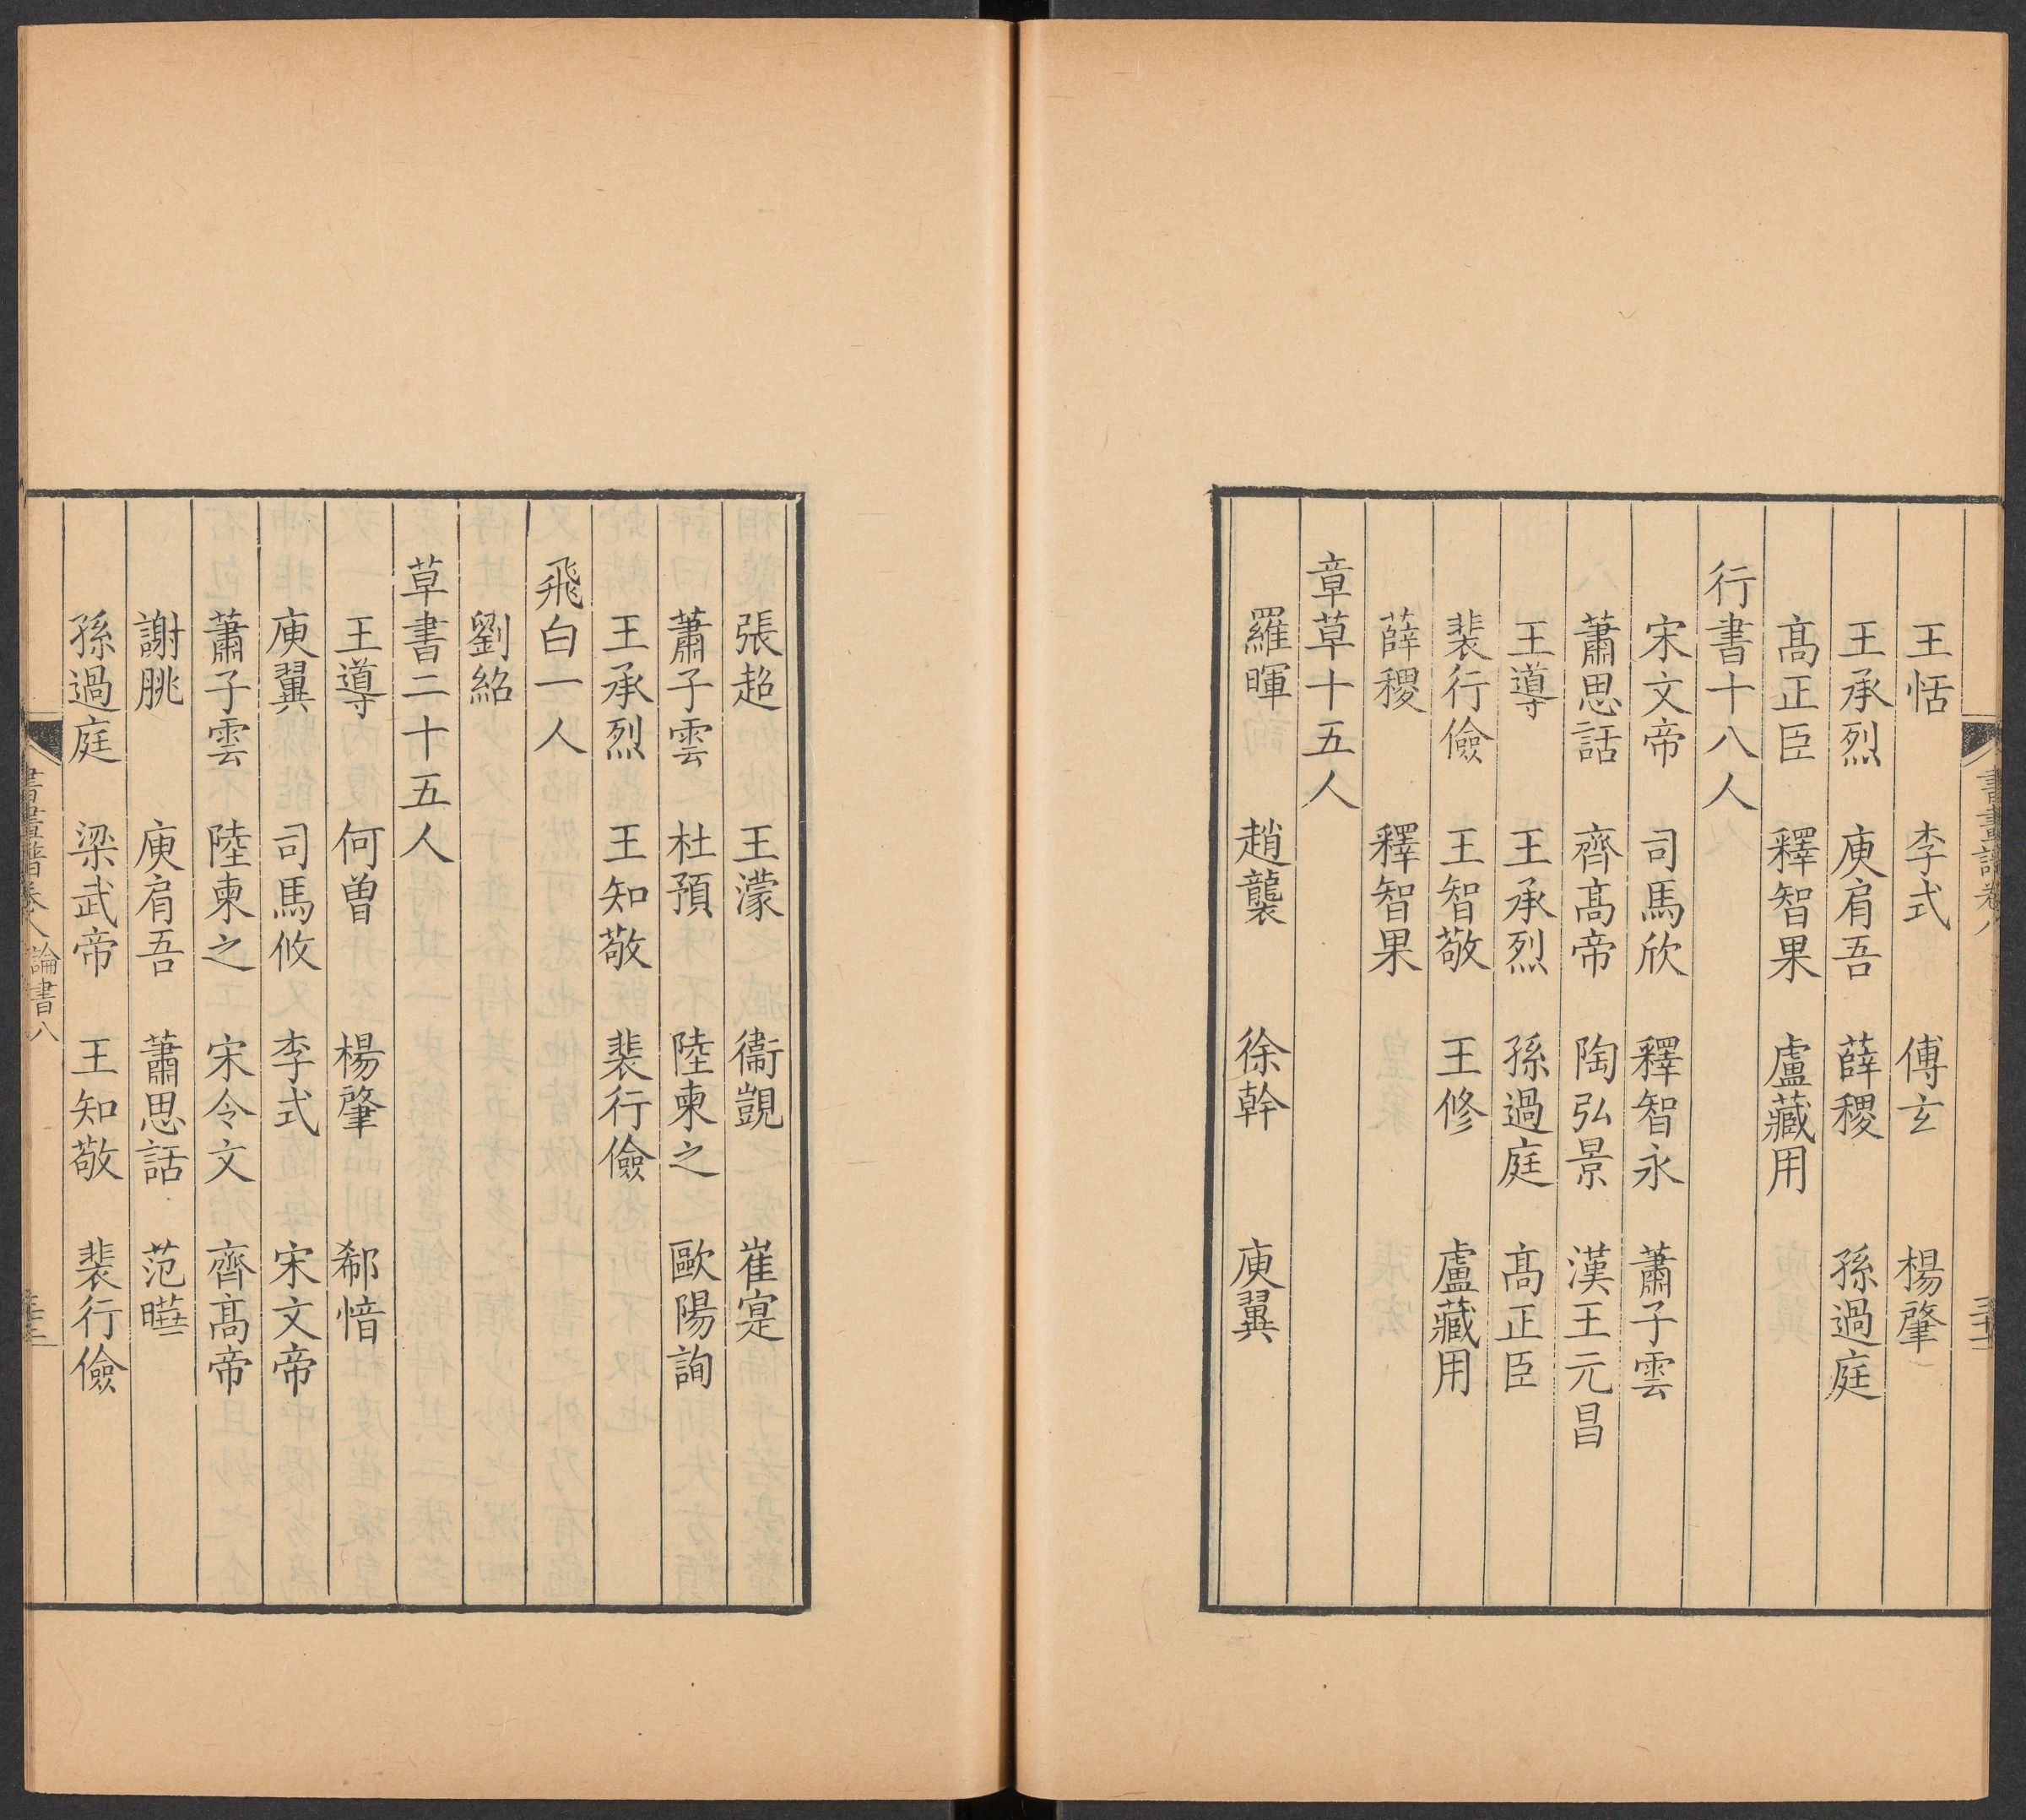 王恬 李式 傅玄 楊肇
王承烈 庾肩吾 薛稷 孫過庭
髙正臣 釋智果 盧藏用
行書十八人
宋文帝 司馬攸 釋智永 蕭子雲
蕭思話 齊髙帝 陶弘景 漢王元昌
王導 王承烈 孫過庭 髙正臣
裴行儉 王智敬 王修 盧藏用
薛稷 釋智果
章草十五人
羅暉 趙襲 徐幹 庾翼
張超 王濛 衞覬 崔寔
蕭子雲 杜預 陸柬之 歐陽詢
王承烈 王知敬 裴行儉
飛白一人
劉紹
草書二十五人
王導 何曾 楊肇 郗愔
庾翼 司馬攸 李式 宋文帝
蕭子雲 陸柬之 宋令文 齊髙帝
謝朓 庾肩吾 蕭思話 范曄
孫過庭 梁武帝 王知敬 裴行儉
書畫譜卷八 論書八